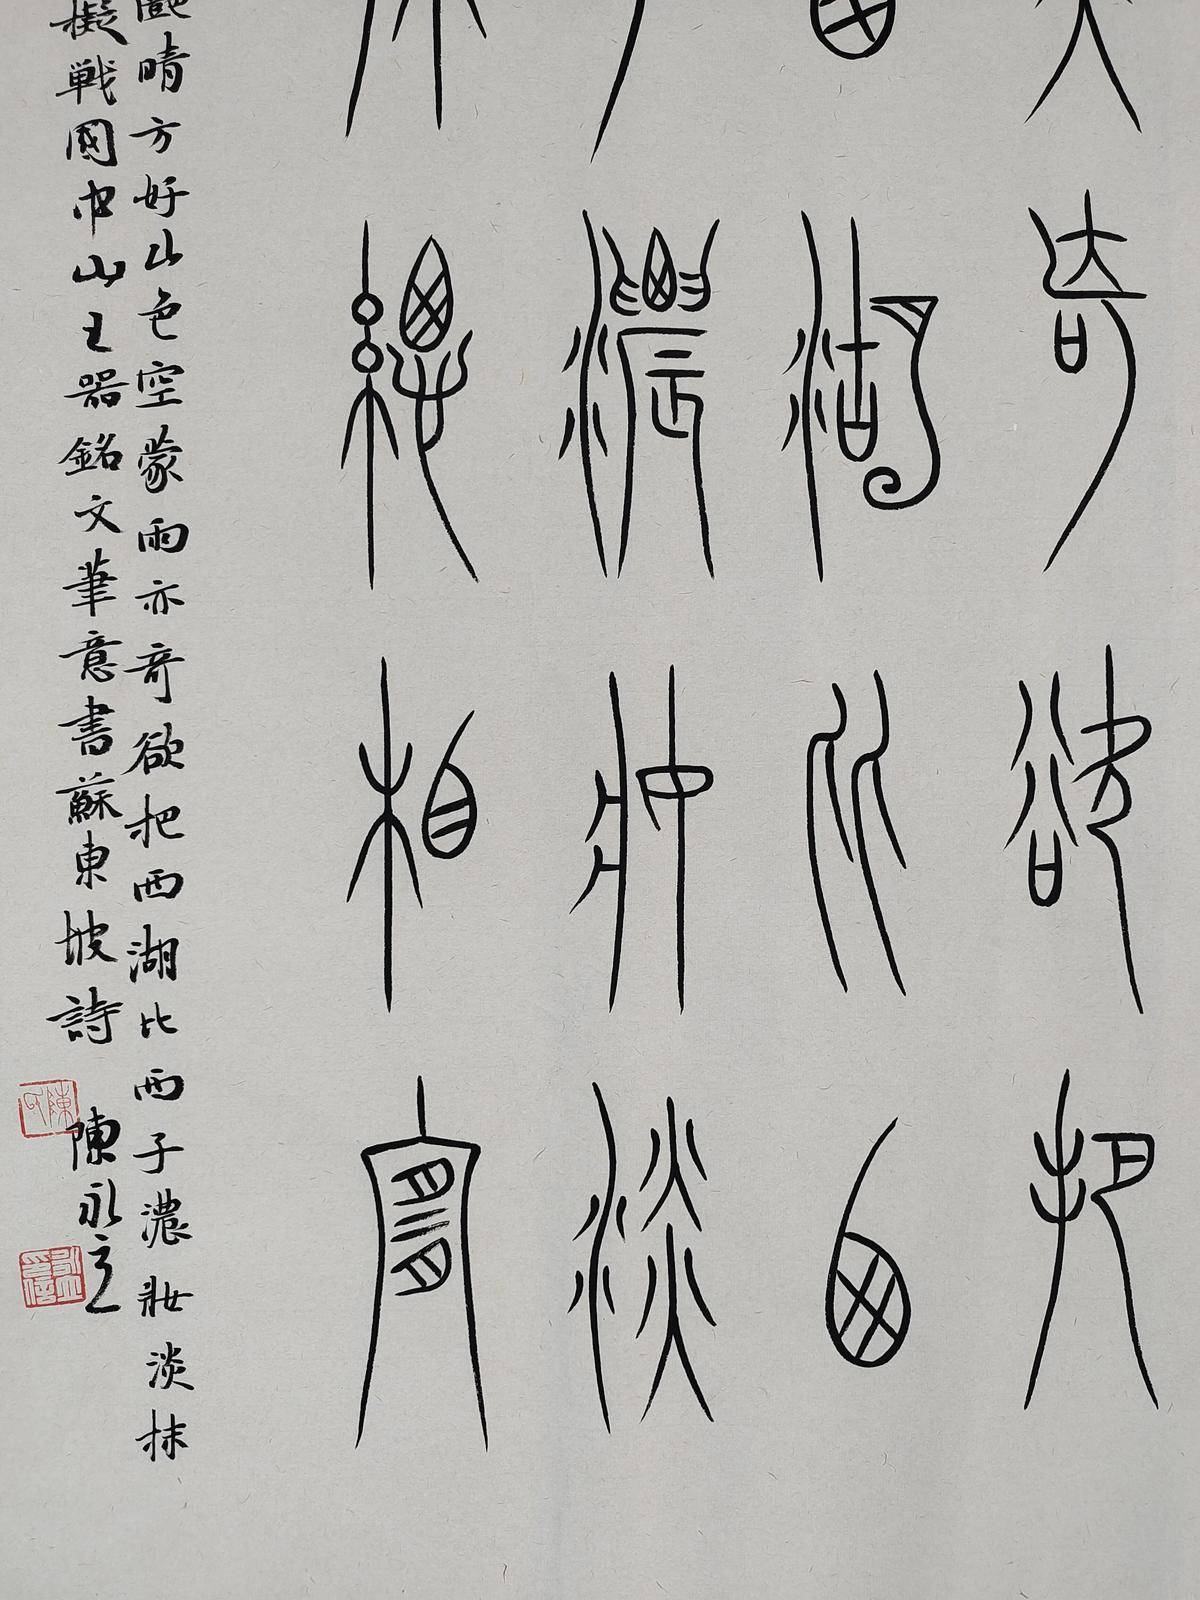 奇欲把
湖比西
濃妝淡
總相宜
晴方好山色空蒙雨亦奇欲把西湖比西子濃妝淡抹
擬戦國中山王器銘文筆意書蘇東坡詩 陳永立